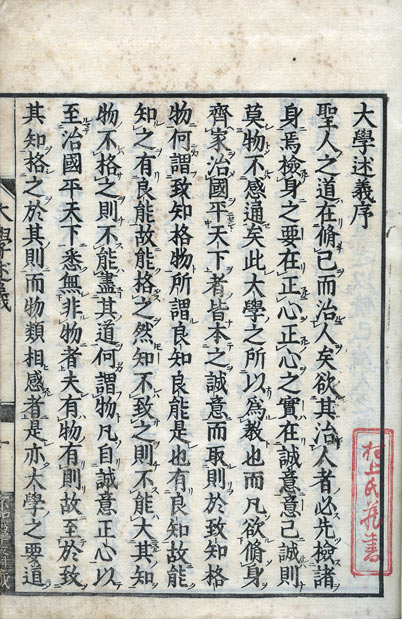 大學述義序
聖人之道在脩己而治人矣欲其治人者必先檢諸
身焉檢身之要在正心正心之實在誠意意己誠則
莫物不感通矣此大學之所以爲教也而凡欲脩身
齊家治國平天下者皆本之誠意而取則於致知格
物何謂致知格物所謂良知良能是也有良知故能
知之有良能故能格之然知不致之則不能大其知
物不格之則不能盡其道何謂物凡自誠意正心以
至治國平天下悉無非物者夫有物有則故至於致
其知格之於其則而物類相感者是亦大學之要道
大學述義
村上氏藏書